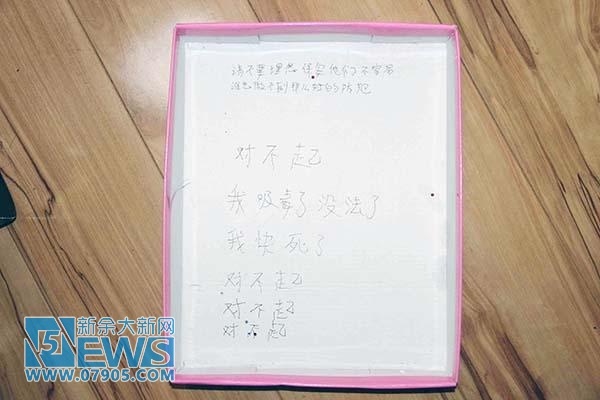 请不要埋怨保安他们不容易
谁也做不到那么好的防范
对不起
我吸毒了没法了
我快死了
对不起
对不起
对不起
新余大新网
NEWS
WWW.07905.COM